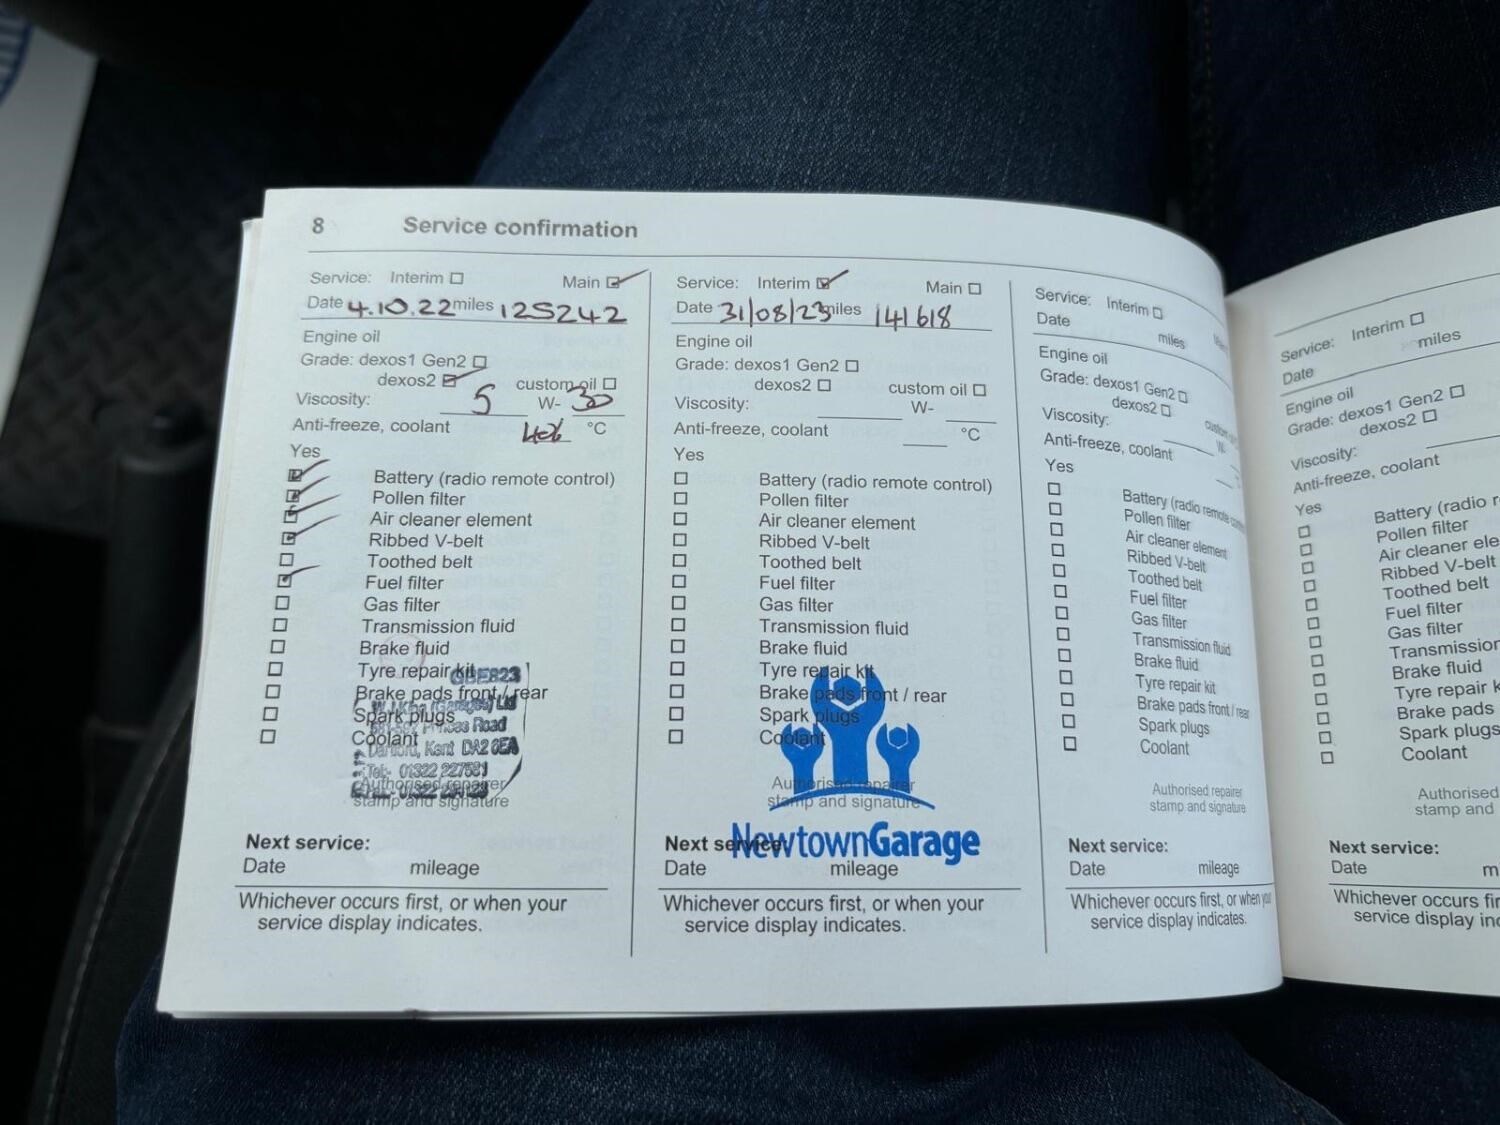 8 Service confirmation
Service: Interim Main
Date 4.10.22 miles 125242
Engine oil
Grade: dexos1 Gen2
dexos2 custom oil
Viscosity: 5 W- 30
Anti-freeze, coolant °C
Yes
Battery (radio remote control)
Pollen filter
Air cleaner element
Ribbed V-belt
Toothed belt
Fuel filter
Gas filter
Transmission fluid
Brake fluid
Tyre repair kit
Brake pads front / rear
Spark plugs
Coolant
(Garages) Ltd
Road
Kent DA2 6EA
Tel:- 01322 227581
Authorised repairer
stamp and signature
Next service:
Date mileage
Whichever occurs first, or when your
service display indicates.
Service: Interim Main
Date 31/08/23 miles 141618
Engine oil
Grade: dexos1 Gen2
dexos2 custom oil
Viscosity: W-
Anti-freeze, coolant °C
Yes
Battery (radio remote control)
Pollen filter
Air cleaner element
Ribbed V-belt
Toothed belt
Fuel filter
Gas filter
Transmission fluid
Brake fluid
Tyre repair kit
Brake pads front / rear
Spark plugs
Coolant
Authorised repairer
stamp and signature
NewtownGarage
Next service:
Date mileage
Whichever occurs first, or when your
service display indicates.
Service: Interim
Date miles
Engine oil
Grade: dexos1 Gen2
dexos2
Viscosity: W-
Anti-freeze, coolant
Yes
Battery (radio remote
Pollen filter
Air cleaner element
Ribbed V-belt
Toothed belt
Fuel filter
Gas filter
Transmission fluid
Brake fluid
Tyre repair kit
Brake pads front / rear
Spark plugs
Coolant
Authorised repairer
stamp and signature
Next service:
Date mileage
Whichever occurs first, or when you
service display indicates.
Service: Interim
Date miles
Engine oil
Grade: dexos1 Gen2
dexos2
Viscosity:
Anti-freeze, coolant
Yes
Battery (radio
Pollen filter
Air cleaner ele
Ribbed V-belt
Toothed belt
Fuel filter
Gas filter
Transmission
Brake fluid
Tyre repair k
Brake pads
Spark plugs
Coolant
Authorised
stamp and
Next service:
Date m
Whichever occurs fir
service display ind